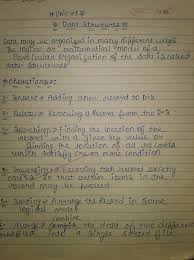 # Unit :- 1 #
# Data Structures #
Data may be organized in many different ways
The logical or mathematical model of a
Particular organization of the data is called
data-structures
# Operations :-
1- Insert :- Adding a new record to D-S
2- Delete :- Removing a Record from the D-S
3- Searching :- Finding the location of the
record with a given key value or
finding the location of all records
which satisfy one or more condition
4- Traversing :- Accessing each record exactly
once so that certain items in the
record may be processed
5- Sorting :- Arrange the Record in Some
logical order
combine
6- Merge :- the data of two different
into a single sorted file